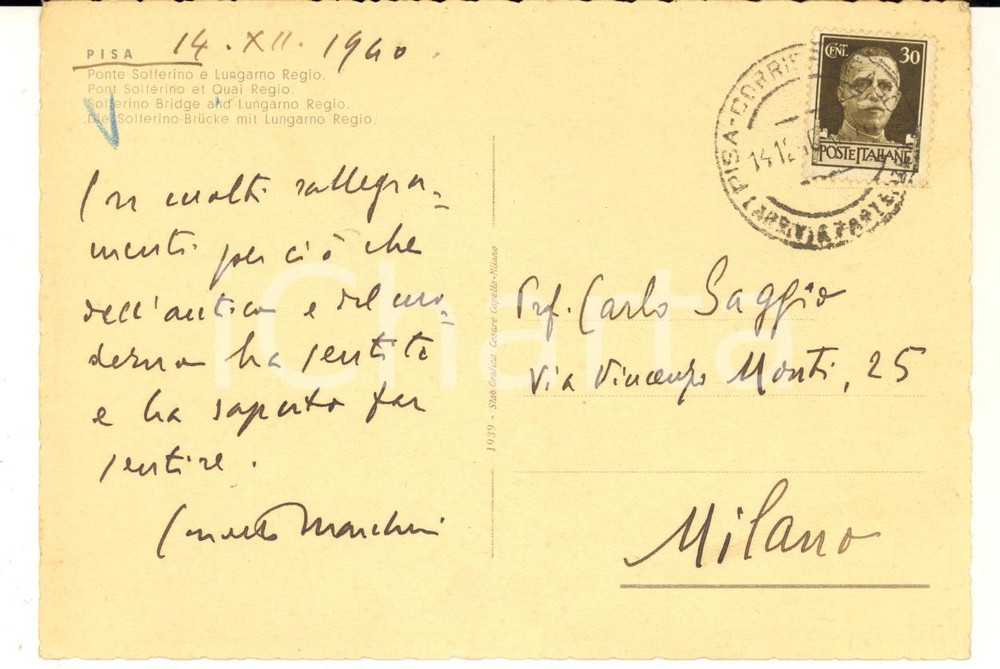 PISA 14.XII.1940.
Ponte Solferino e Lungarno Regio.
Pont Solférino et Quai Regio.
Solferino Bridge and Lungarno Regio.
Die Solferino-Brücke mit Lungarno Regio.
Con molti rallegra-
menti per ciò che
dell'antico e del mo-
derno ha sentito
e ha saputo far
sentire.
Concetto Marchesi
1939 - Stab. Grafico Cesare Capello - Milano
CENT. 30
POSTE ITALIANE
PISA-CORRISP
14.12.40
(ARRIVI E PARTENZE)
Prof. Carlo Saggio
Via Vincenzo Monti, 25
Milano
iCharta